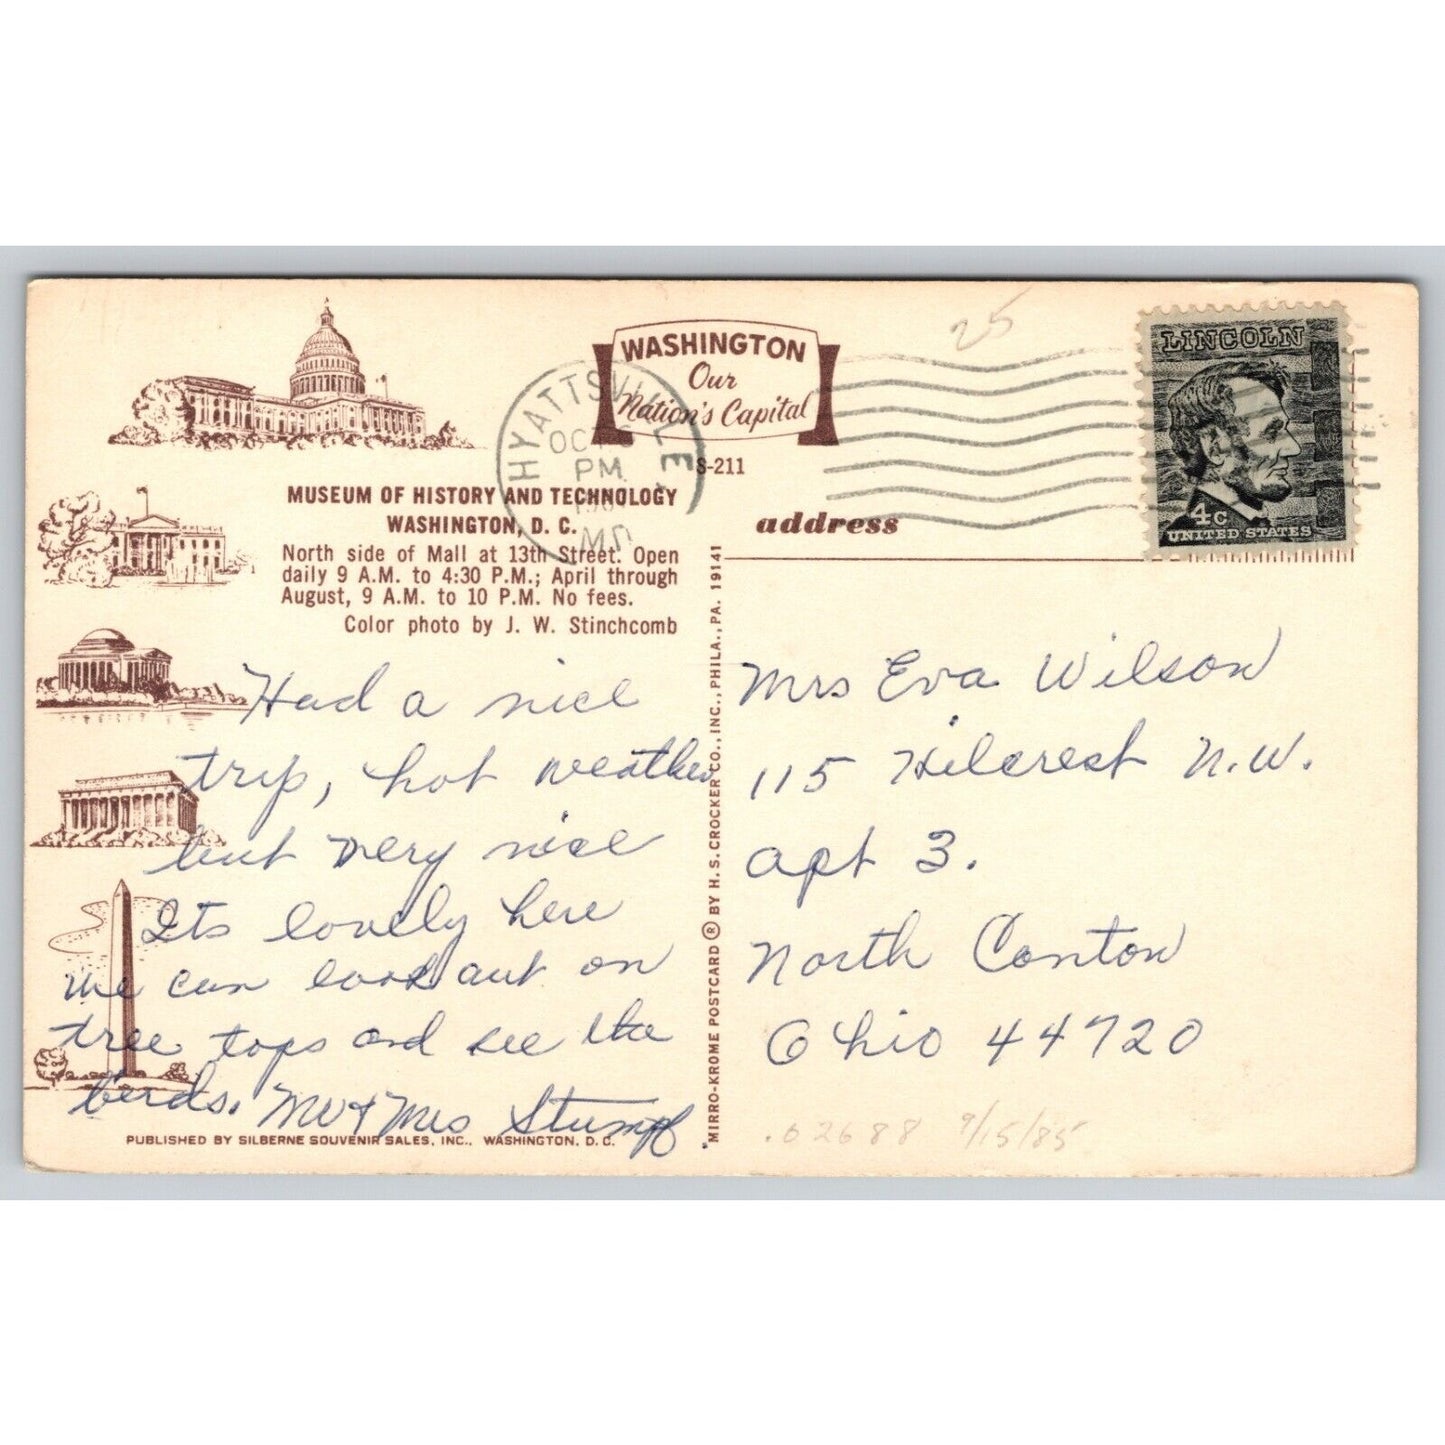 WASHINGTON
Our
Nation's Capital
S-211
25
HYATTSVILLE
OCT
PM
MD
LINCOLN
4c
UNITED STATES
MUSEUM OF HISTORY AND TECHNOLOGY
WASHINGTON, D. C.
North side of Mall at 13th Street. Open
daily 9 A.M. to 4:30 P.M.; April through
August, 9 A.M. to 10 P.M. No fees.
Color photo by J. W. Stinchcomb
Had a nice
trip, hot weather
but very nice
Its lovely here
we can look out on
tree tops and see the
birds. Mr & Mrs Stumpf
PUBLISHED BY SILBERNE SOUVENIR SALES, INC., WASHINGTON, D. C.
MIRRO-KROME POSTCARD ® BY H. S. CROCKER CO., INC., PHILA., PA. 19141
address
Mrs Eva Wilson
115 Hilcrest N.W.
apt 3.
North Canton
Ohio 44720
.02688 9/15/85